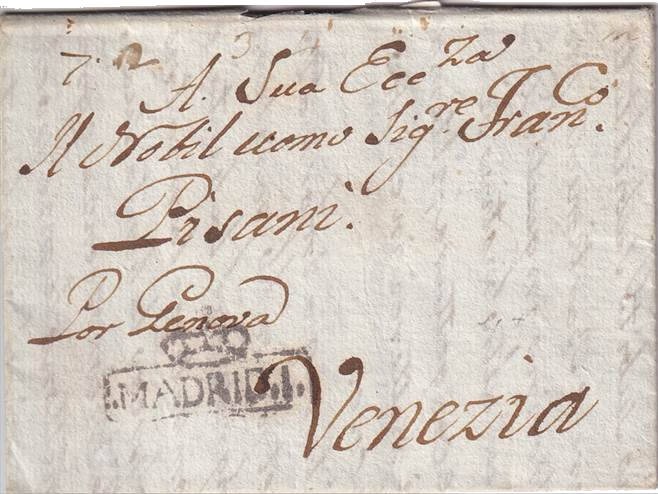 A. Sua Eccza
Il Nobil uomo Sigre. Franco.
Pisani.
Por Genova
.MADRID.
Venezia